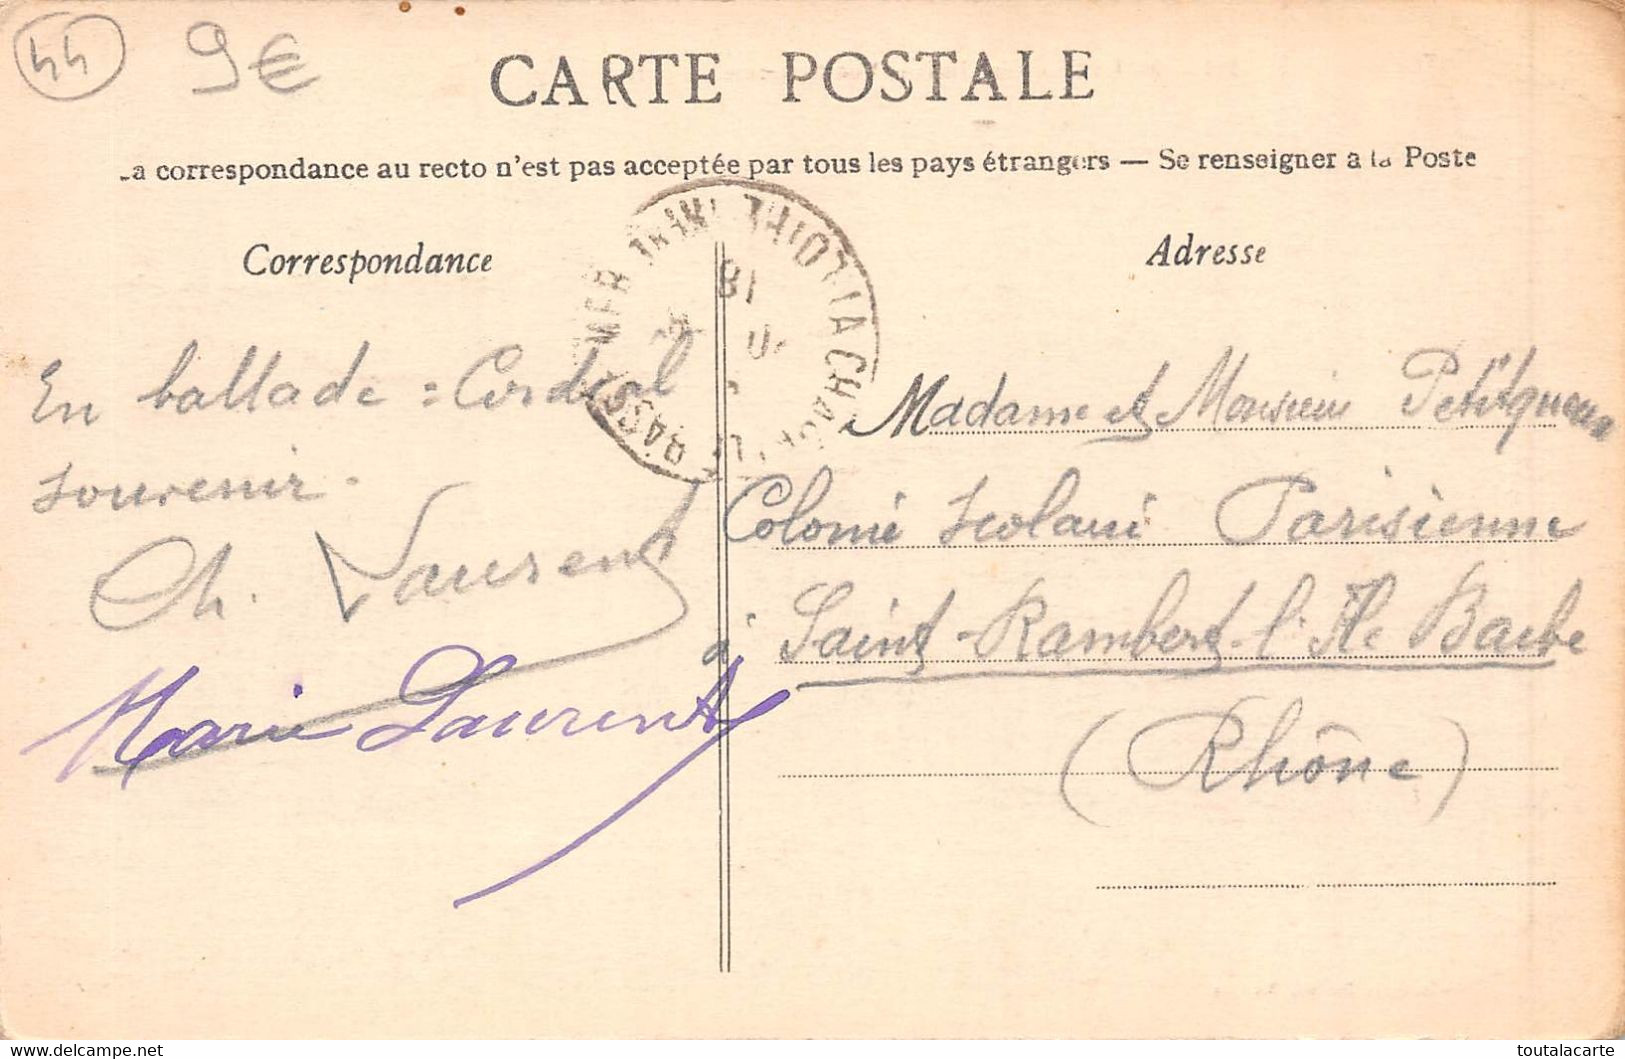 44 9€
CARTE POSTALE
La correspondance au recto n'est pas acceptée par tous les pays étrangers — Se renseigner a la Poste
Correspondance
Adresse
En ballade : Cordial
souvenir.
Ch. Laurent
Marie Laurent
Madame et Monsieur Petitqueux
Colonie Scolaire Parisienne
à Saint-Rambert-l'Ile Barbe
(Rhône)
www.delcampe.net
toutalacarte